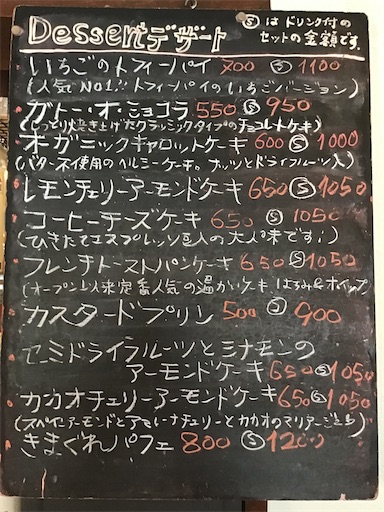 Dessert デザート
Ⓢ は ドリンク付の
セットの金額です。
いちごのトフィーパイ 700 Ⓢ 1100
(人気NO1!! トフィーパイのいちごバージョン)
ガトー・オ・ショコラ 550 Ⓢ 950
(しっとり焼き上げたクラッシックタイプのチョコレートケーキ)
オーガニックキャロットケーキ 600 Ⓢ 1000
(バター不使用のヘルシーケーキ。ナッツとドライフルーツ入)
レモンチェリーアーモンドケーキ 650 Ⓢ 1050
コーヒーチーズケーキ 650 Ⓢ 1050
(ひきたてエスプレッソ豆入の大人味です!)
フレンチトーストパンケーキ 650 Ⓢ 1050
(オープン以来定番人気の温かいケーキ はちみつ&ホイップ)
カスタードプリン 500 Ⓢ 900
セミドライフルーツとシナモンの
アーモンドケーキ 650 Ⓢ 1050
カカオチェリーアーモンドケーキ 650 Ⓢ 1050
(スペインアーモンドとアメリーナチェリーとカカオのマリアージュ)
きまぐれパフェ 800 Ⓢ 1200